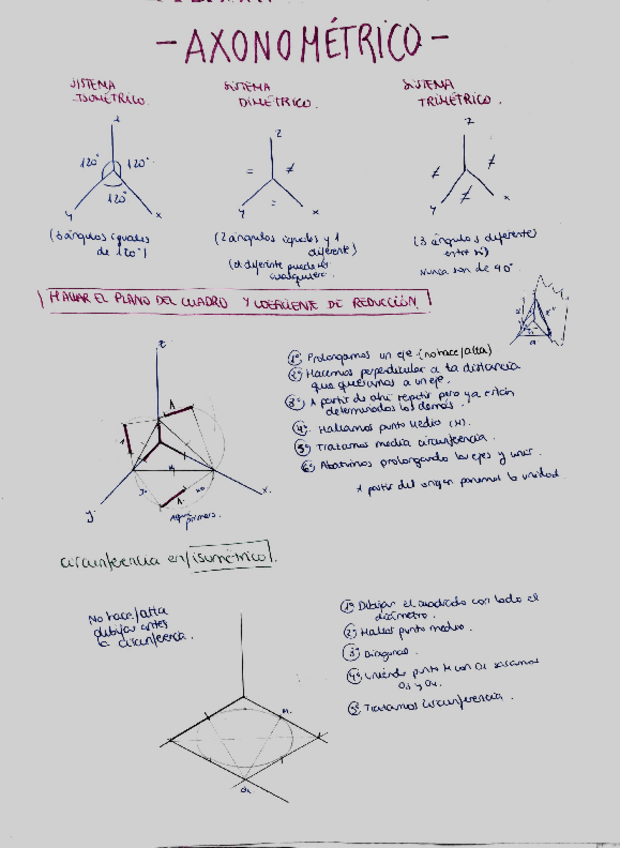 - AXONOMÉTRICO -
SISTEMA
ISOMÉTRICO.
SISTEMA
DIMÉTRICO.
SISTEMA
TRIMÉTRICO.
z
120°
120°
120°
y
x
z
=
≠
=
y
x
z
≠
≠
≠
y
x
(3 ángulos iguales
de 120°)
(2 ángulos iguales y 1
diferente)
(el diferente puede ser
cualquiera.
(3 ángulos diferentes
entre sí)
Nunca son de 90°
HALLAR EL PLANO DEL CUADRO Y COEFICIENTE DE REDUCCIÓN
1º Prolongamos un eje (no hace falta)
2º Hacemos perpendicular a la distancia
que queramos a un eje.
3º A partir de ahí repetir pero ya están
determinados los demás.
4º Hallamos punto medio (M).
5º Trazamos media circunferencia.
6º Abatimos prolongando los ejes y unir.
* partir del origen ponemos la unidad
z
y
x
Aquí
primero.
circunferencia en isométrico.
No hace falta
dibujar antes
la circunferencia.
1º Dibujar el cuadrado con lado el
diámetro.
2º Hallar punto medio.
3º Diagonal.
4º Uniendo punto M con O1 sacamos
O3 y O4.
5º Trazamos circunferencia.
M.
O1